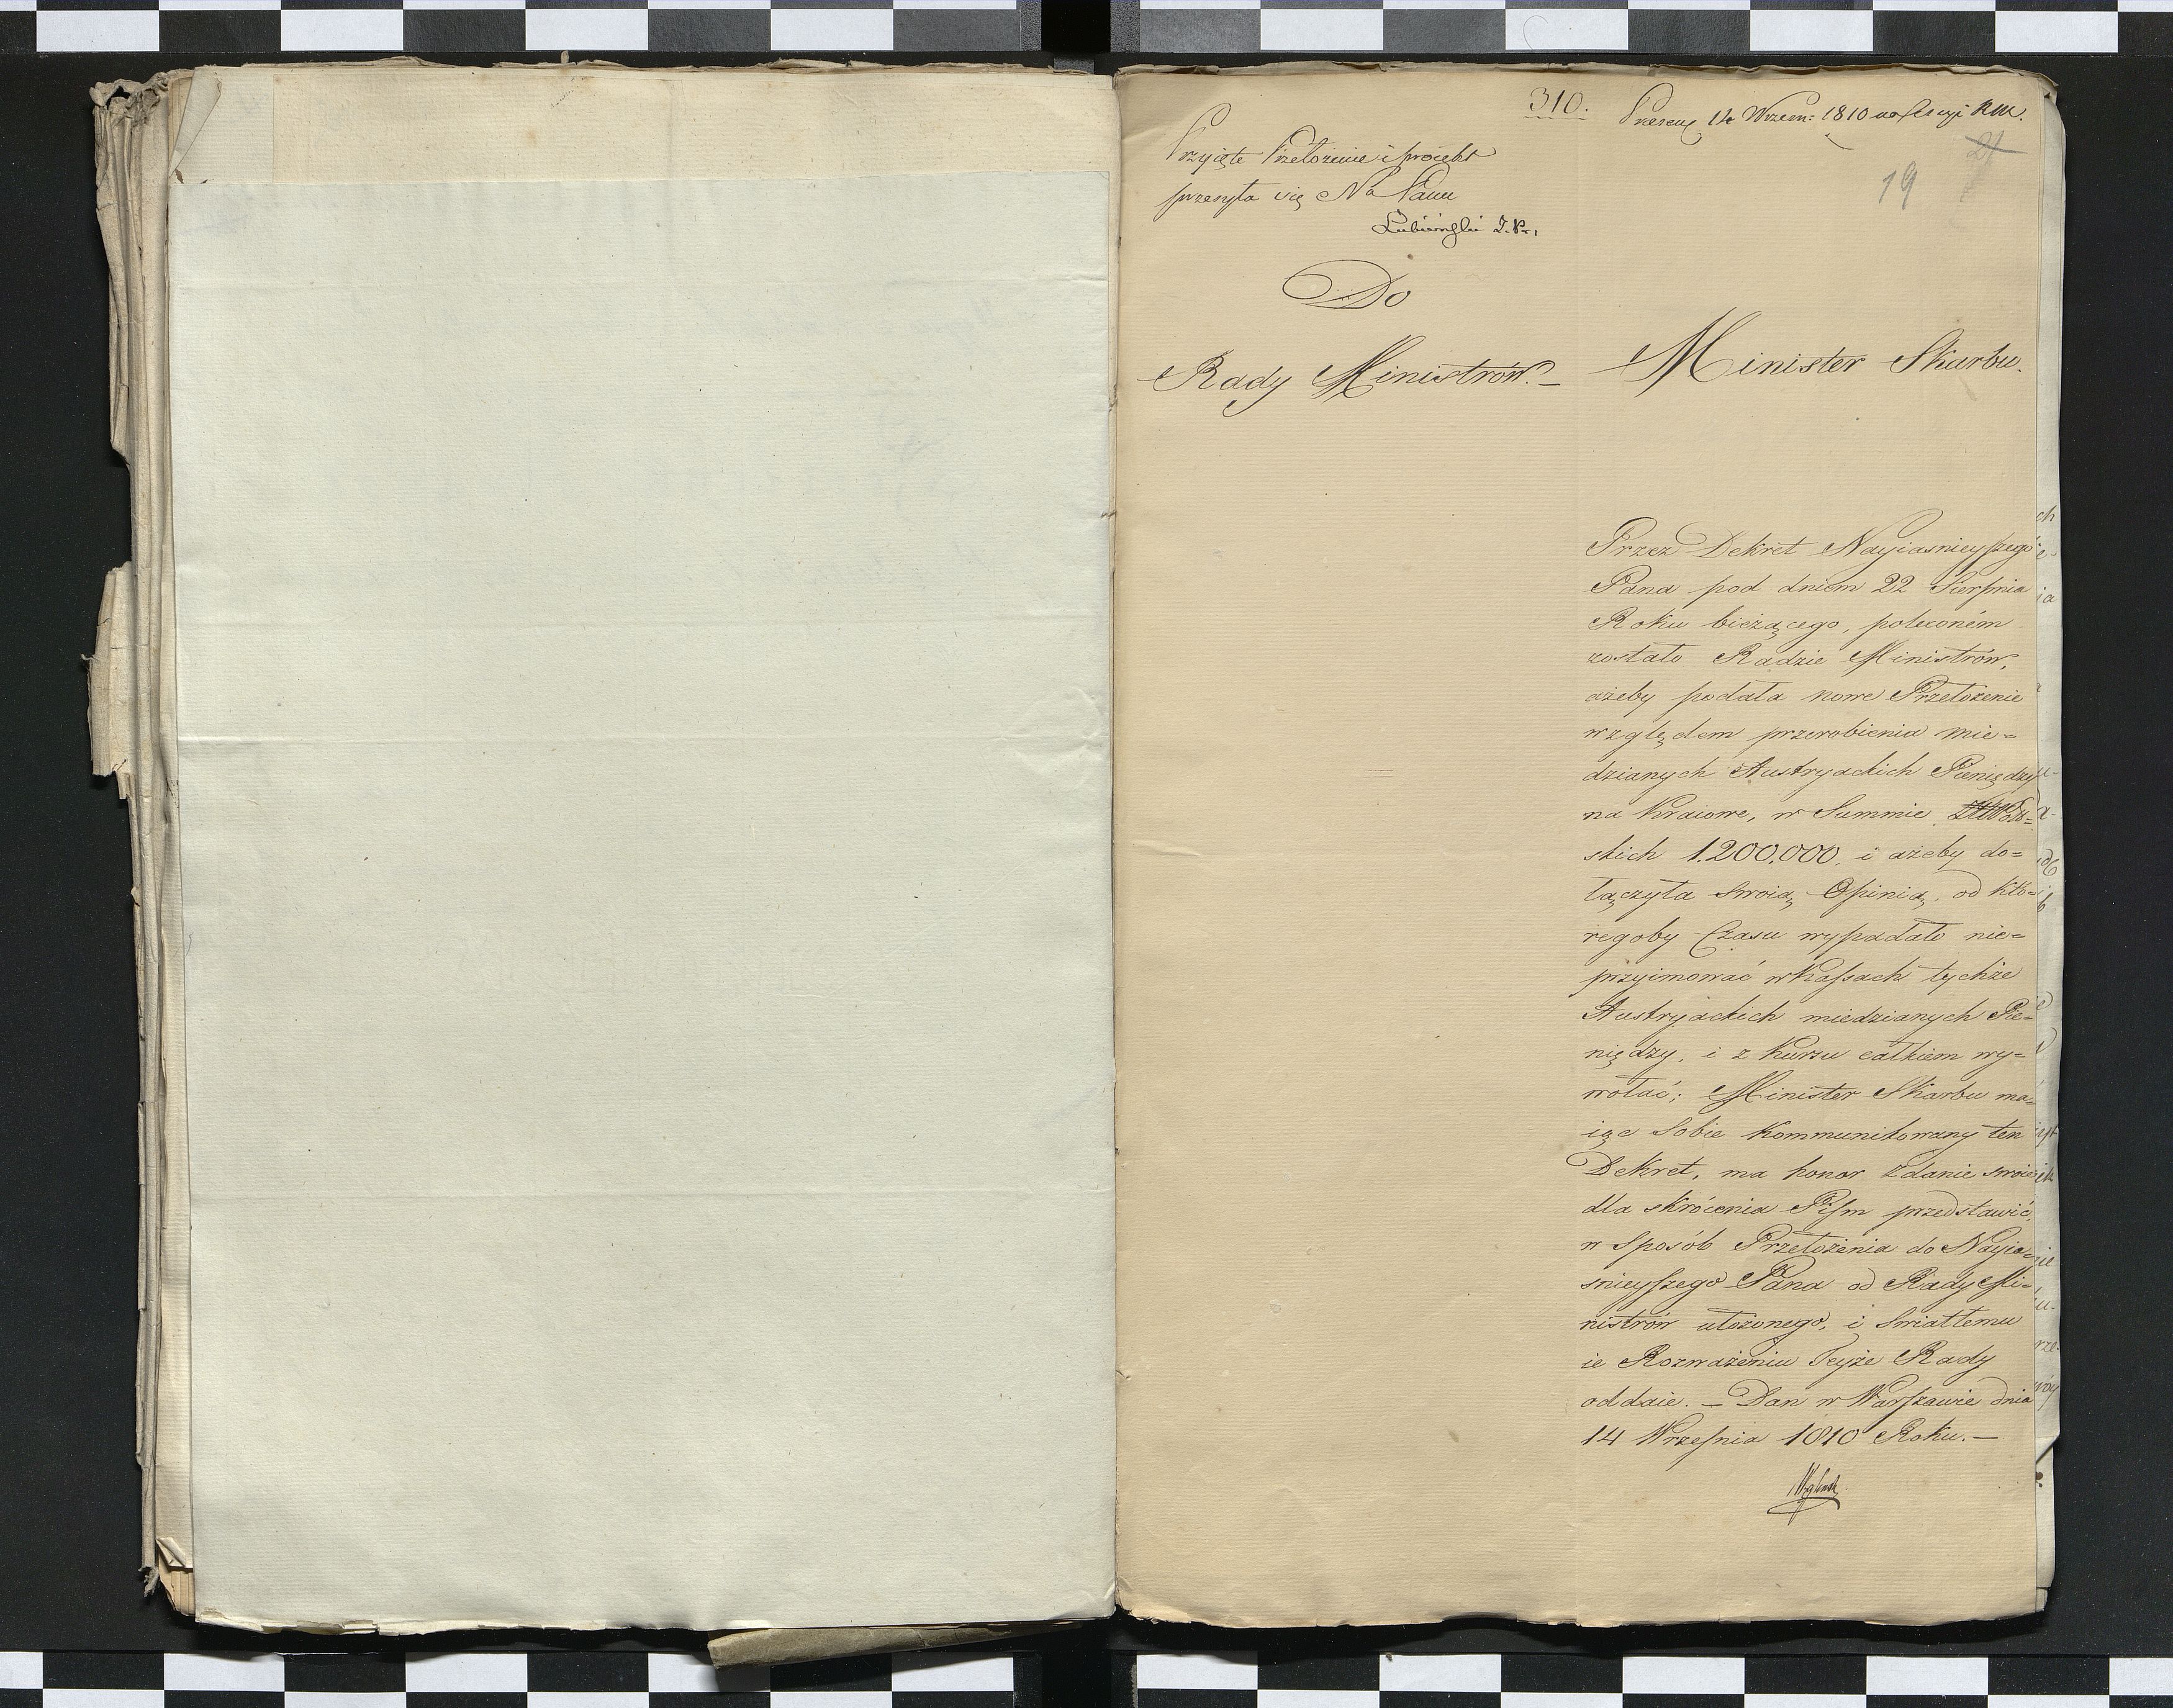 310.
Praesent 14 Wrzesn: 1810 na Sessyi RM.
21
19
Przyięte Przełożenie i proiekt
przesyła się Na Panu
Lubieński
Do
Rady Ministrów. –
Minister Skarbu.
Przez Dekret Nayiasnieyszego
Pana pod dniem 22 Sierpnia
Roku bieżącego, poleconém
zostało Radzie Ministrów,
ażeby podała nowe Przełożenie
względem przerobienia mie=
dzianych Austryackich Pieniędzy
na Kraiowe, w Summie
skich 1.200.000. i ażeby do=
łączyła swoią Opinią, od któ=
regoby Czasu wypadało nie=
przyimować w Kassach tychże
Austryackich miedzianych Pie=
niędzy, i z Kursu całkiem wy=
wołać; Minister Skarbu ma=
iąc sobie Kommunikowany ten
Dekret, ma honor Zdanie swoie
dla skrócenia Pism przedstawić,
w Sposób Przełożenia do Nayia=
snieyszego Pana od Rady Mi=
nistrów ułożonego, i Swiatłemu
ie Rozważeniu Teyże Rady
oddaie. – Dan w Warszawie dnia
14 Września 1810 Roku. –